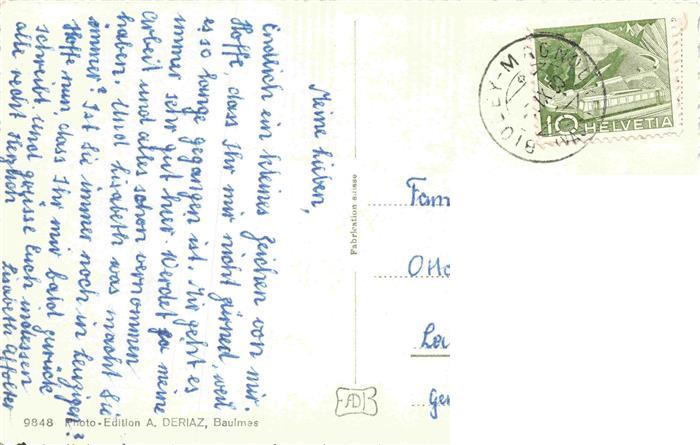 Meine Lieben,
Endlich ein kleines Zeichen von mir.
Hoffe, dass Ihr mir nicht zürned, weil
es so lange gegangen ist. Mir geht es
immer sehr gut hier. Werdet ja meine
Arbeit und alles schon vernommen
haben. Und Lisabeth was machst Du
immer? Ist sie immer noch in Leuzigen?
Hoffe nun, dass Ihr mir bald zurück
schreibt. Und grüsse Euch indessen
alle recht herzlich
Lisabeth Affolter
Fabrication suisse
Fam
Otto
Ger
10 HELVETIA
9848 Photo-Edition A. DERIAZ, Baulmes